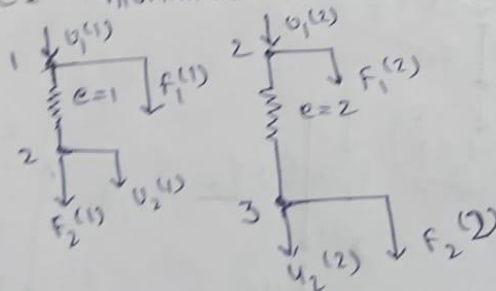 1 U₁(1)
F₁(1)
e=1
2
F₂(1)
U₂(1)
2 U₁(2)
F₁(2)
e=2
3
U₂(2)
F₂(2)